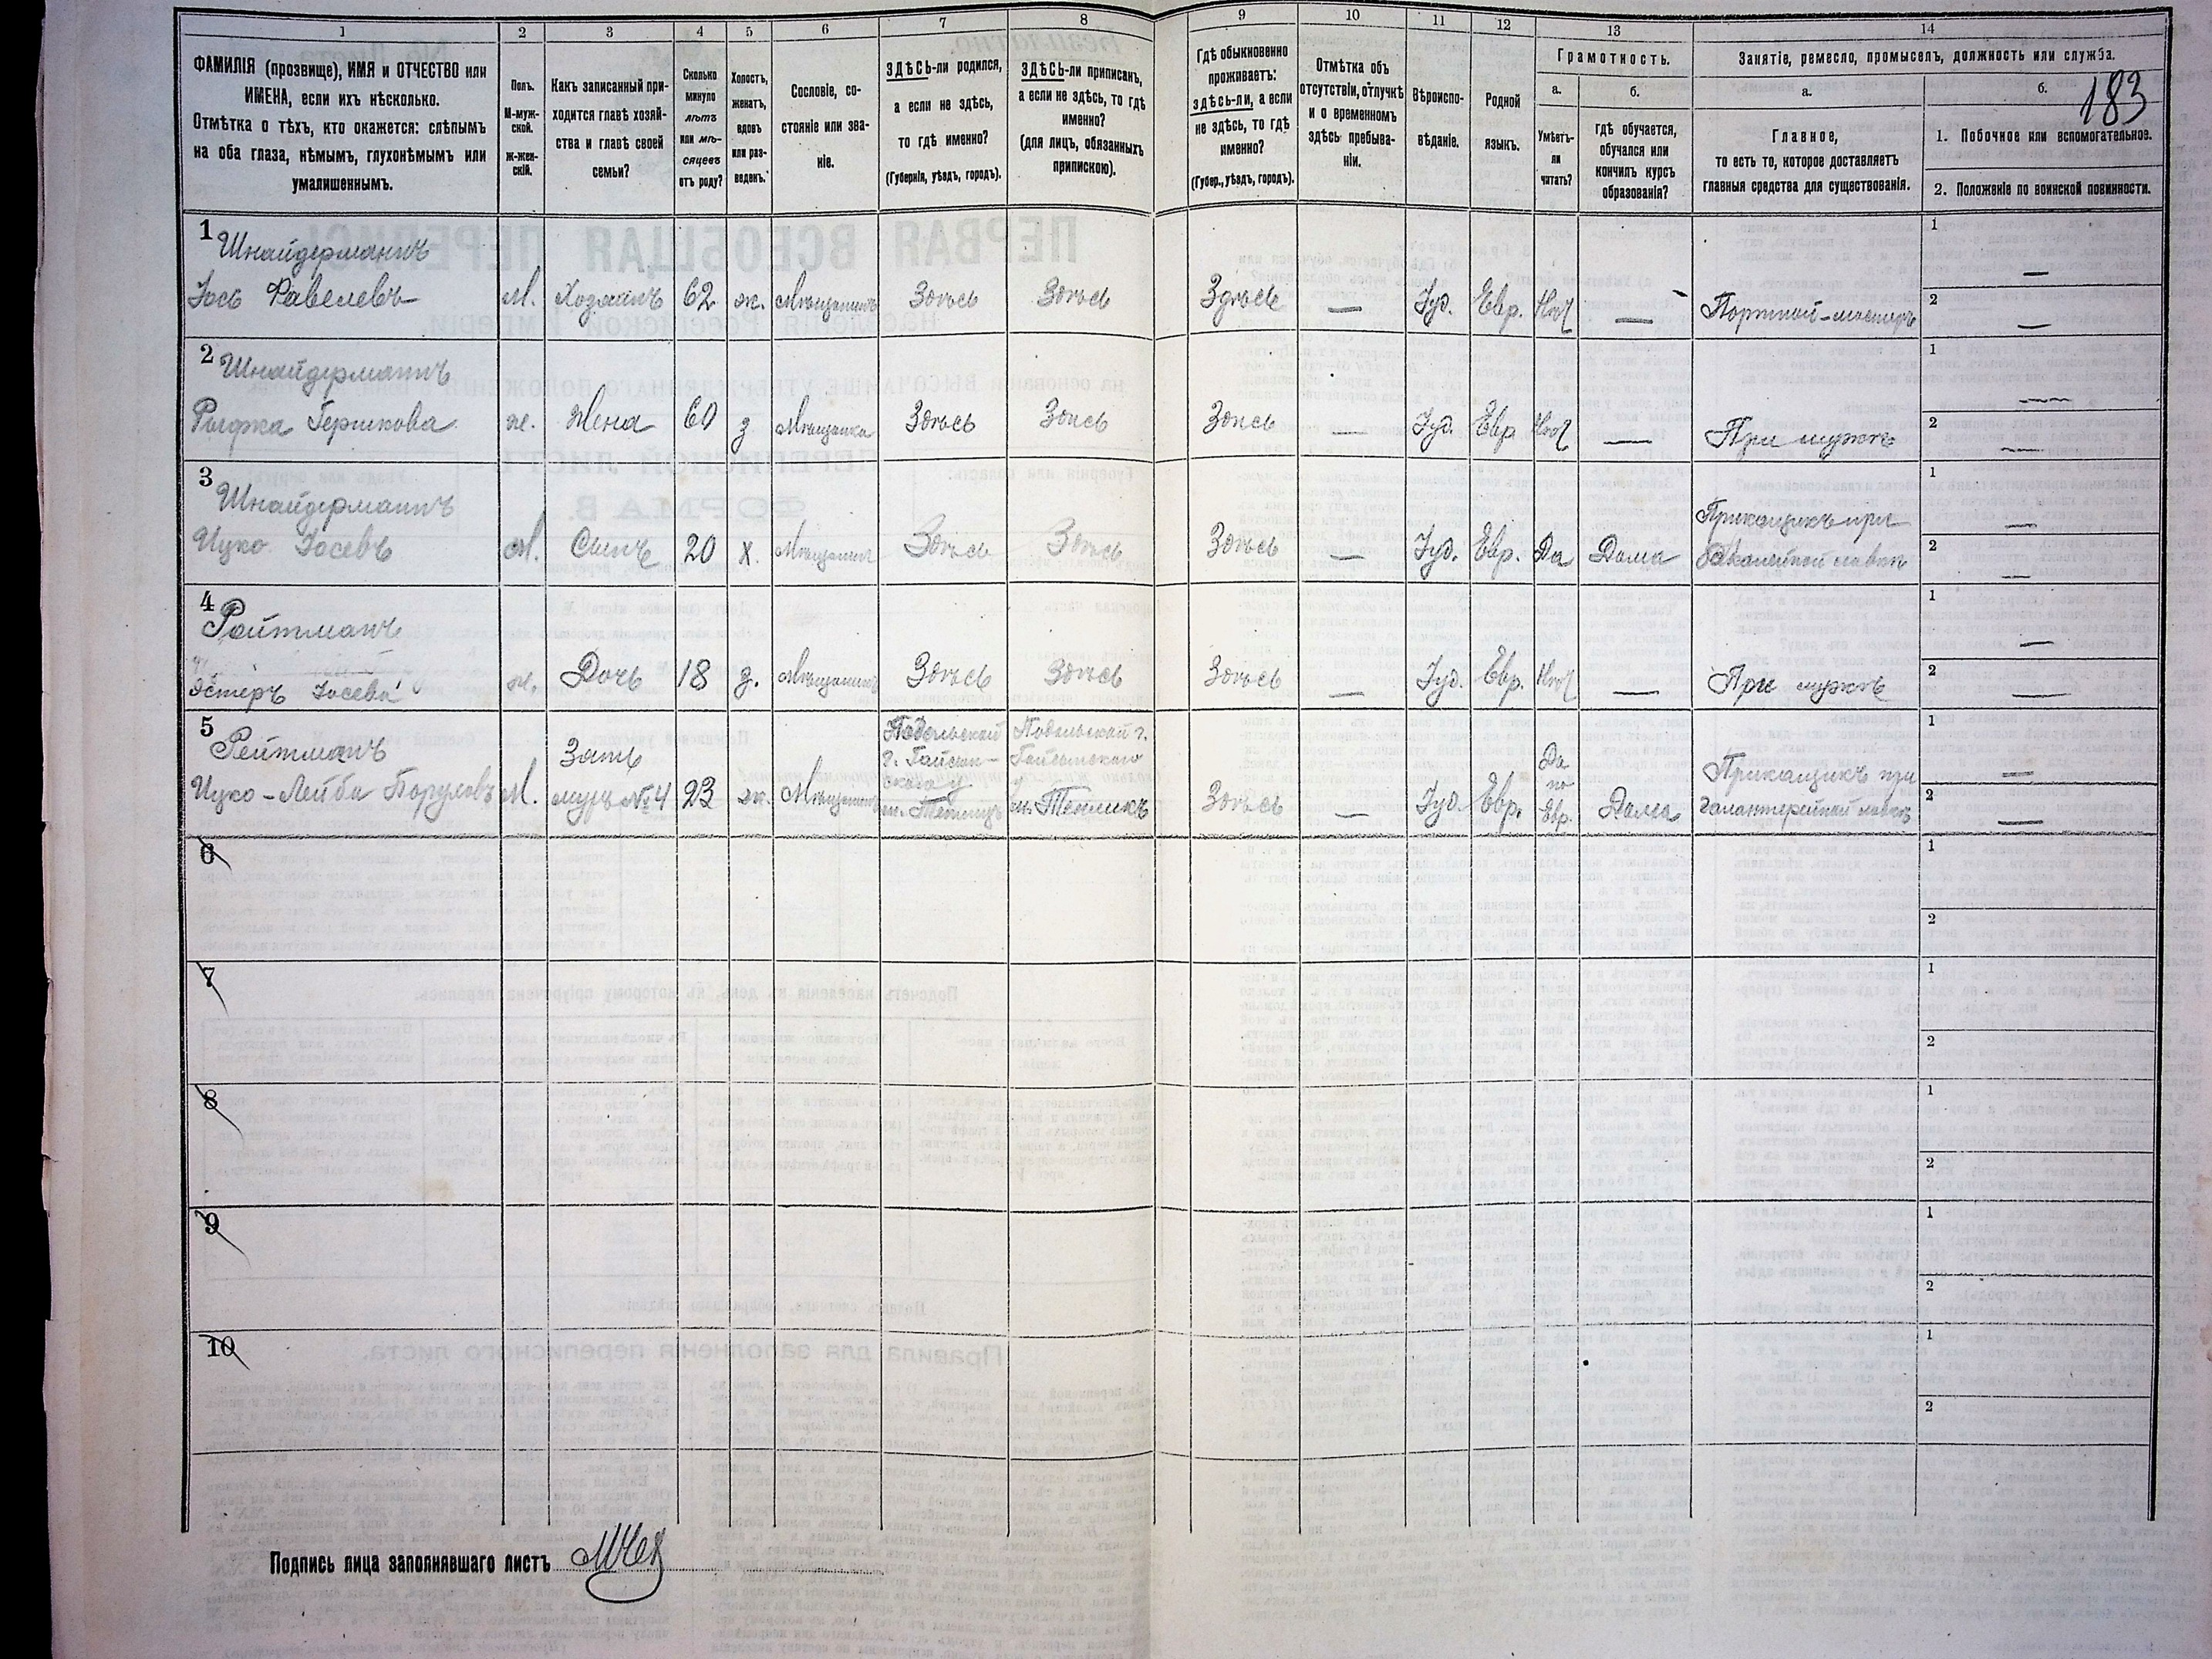 183
1 2 3 4 5 6 7 8 9 10 11 12 13 14
ФАМИЛІЯ (прозвище), ИМЯ и ОТЧЕСТВО или
ИМЕНА, если ихъ нѣсколько.
Отмѣтка о тѣхъ, кто окажется: слѣпымъ
на оба глаза, нѣмымъ, глухонѣмымъ или
умалишеннымъ.
Полъ.
М-муж-
ской.
Ж-жен-
скій.
Какъ записанный при-
ходится главѣ хозяй-
ства и главѣ своей
семьи?
Сколько
минуло
лѣтъ
или мѣ-
сяцевъ
отъ роду?
Холостъ,
женатъ,
вдовъ
или раз-
веденъ.
Сословіе, со-
стояніе или зва-
ніе.
ЗДѢСЬ-ли родился,
а если не здѣсь,
то гдѣ именно?
(Губернія, уѣздъ, городъ).
ЗДѢСЬ-ли приписанъ,
а если не здѣсь, то гдѣ
именно?
(для лицъ, обязанныхъ
припискою).
Гдѣ обыкновенно
проживаетъ:
здѣсь-ли, а если
не здѣсь, то гдѣ
именно?
(Губер., уѣздъ, городъ).
Отмѣтка объ
отсутствіи, отлучкѣ
и о временномъ
здѣсь пребыва-
ніи.
Вѣроиспо-
вѣданіе.
Родной
языкъ.
Грамотность.
а.
Умѣетъ-
ли
читать?
б.
гдѣ обучается,
обучался или
кончилъ курсъ
образованія?
Занятіе, ремесло, промыселъ, должность или служба.
а.
Главное,
то есть то, которое доставляетъ
главныя средства для существованія.
б.
1. Побочное или вспомогательное.
2. Положеніе по воинской повинности.
1 Шнайдерманъ
Іось Фавелевъ М. Хозяинъ 62 ж. Мѣщанинъ Здѣсь Здѣсь Здѣсь — Іуд. Евр. Нѣт — Портной-мастеръ
1 —
2 —
2 Шнайдерманъ
Рыфка Гершкова ж. Жена 60 з Мѣщанка Здѣсь Здѣсь Здѣсь — Іуд. Евр Нѣт — При мужѣ
1 —
2 —
3 Шнайдерманъ
Ицко Іосевъ М. Сынъ 20 х. Мѣщанин Здѣсь Здѣсь Здѣсь — Іуд. Евр. Да Дома
Прикащикъ при
бакалейной лавкѣ
1 —
2 —
4 Ройтманъ
Эстеръ Іосева ж. Дочь 18 з. Здѣсь Здѣсь Здѣсь — Іуд. Евр. Нѣт — При мужѣ
1 —
2 —
5 Рейтманъ
Ицко-Лейба М.
Зять
мужъ №4 23 ж. Мѣщанин
Подольской
г. Гайсин-
скаго у
Подольской г.
Гайсинскаго
у
м. Тепликъ
Здѣсь — Іуд. Евр.
Да
по
Евр. Дома
Прикащикъ при
галантерейной лавкѣ
1 —
2 —
6
1
2
7
1
2
8
1
2
9
1
2
10
1
2
Подпись лица заполнявшаго листъ